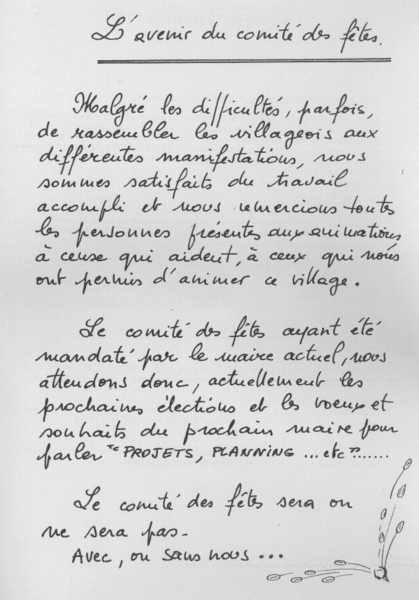 L'avenir du comité des fêtes.
Malgré les difficultés, parfois,
de rassembler les villageois aux
différentes manifestations, nous
sommes satisfaits du travail
accompli et nous remercions toutes
les personnes présentes aux animations,
à ceuse qui aident, à ceux qui nous
ont permis d'animer ce village.
Le comité des fêtes ayant été
mandaté par le maire actuel, nous
attendons donc, actuellement les
prochaines élections et les voeux et
souhaits du prochain maire pour
parler "PROJETS, PLANNING ... etc"......
Le comité des fêtes sera ou
ne sera pas-
Avec, ou sans nous ...